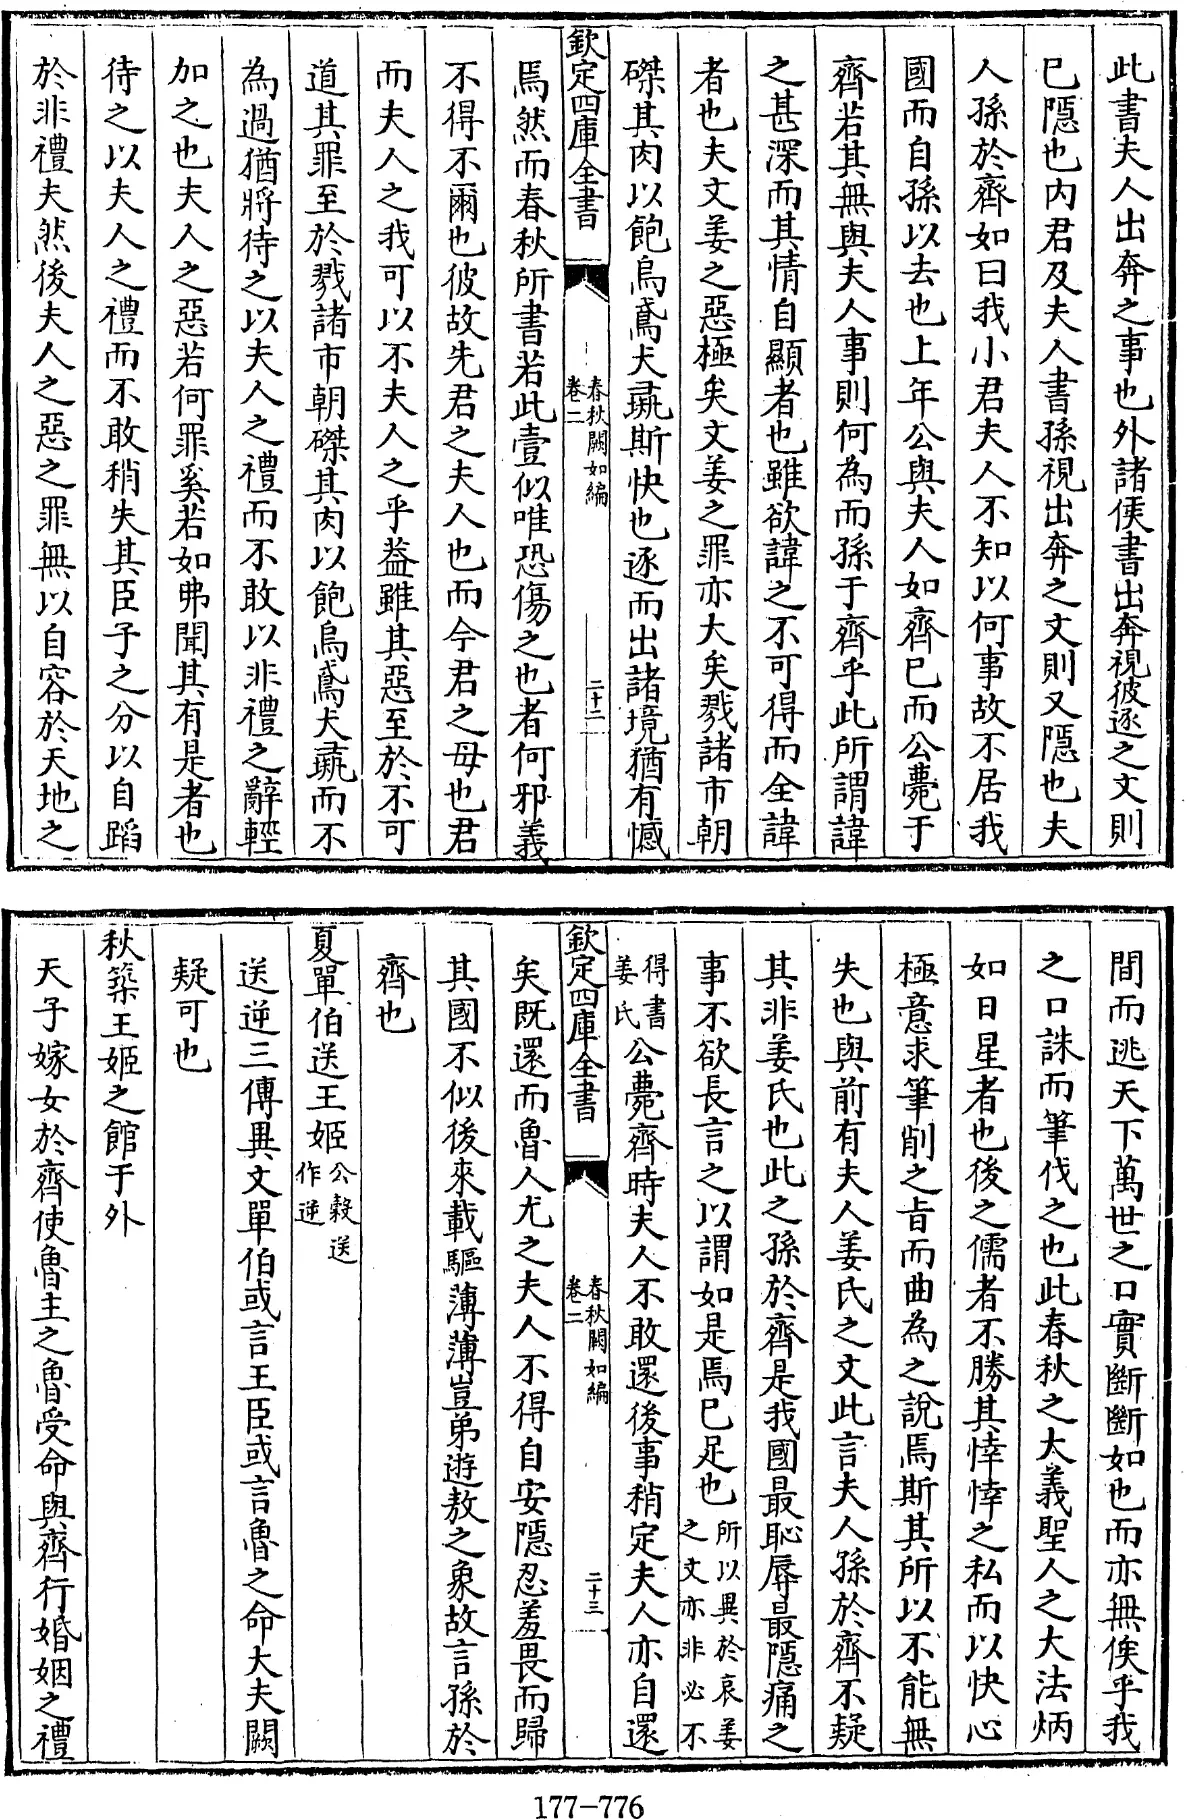 此書夫人出奔之事也外諸侯書出奔視彼逐之文則
已隠也内君及夫人書孫視出奔之文則又隠也夫
人孫於齊如曰我小君夫人不知以何事故不居我
國而自孫以去也上年公與夫人如齊已而公薨于
齊若其無與夫人事則何為而孫于齊乎此所謂諱
之甚深而其情自顯者也雖欲諱之不可得而全諱
者也夫文姜之惡極矣文姜之罪亦大矣戮諸市朝
磔其肉以飽烏鳶犬彘斯快也逐而出諸境猶有憾
欽定四庫全書
春秋闕如編
卷二
二十二
焉然而春秋所書若此壹似唯恐傷之也者何邪義
不得不爾也彼故先君之夫人也而今君之母也君
而夫人之我可以不夫人之乎葢雖其惡至於不可
道其罪至於戮諸市朝磔其肉以飽烏鳶犬彘而不
為過猶將待之以夫人之禮而不敢以非禮之辭輕
加之也夫人之惡若何罪奚若如弗聞其有是者也
待之以夫人之禮而不敢稍失其臣子之分以自蹈
於非禮夫然後夫人之惡之罪無以自容於天地之
間而逃天下萬世之口實斷斷如也而亦無俟乎我
之口誅而筆伐之也此春秋之大義聖人之大法炳
如日星者也後之儒者不勝其悻悻之私而以快心
極意求筆削之旨而曲為之說焉斯其所以不能無
失也與前有夫人姜氏之文此言夫人孫於齊不疑
其非姜氏也此之孫於齊是我國最恥辱最隠痛之
事不欲長言之以謂如是焉已足也所以異於哀姜之文亦非必不
得書姜氏公薨齊時夫人不敢還後事稍定夫人亦自還
欽定四庫全書
春秋闕如編
卷二
二十三
矣既還而魯人尤之夫人不得自安隠忍羞畏而歸
其國不似後來載驅薄薄豈弟遊敖之象故言孫於
齊也
夏單伯送王姬公穀送作逆
送逆三傳異文單伯或言王臣或言魯之命大夫闕
疑可也
秋築王姬之館于外
天子嫁女於齊使魯主之魯受命與齊行婚姻之禮
177-776